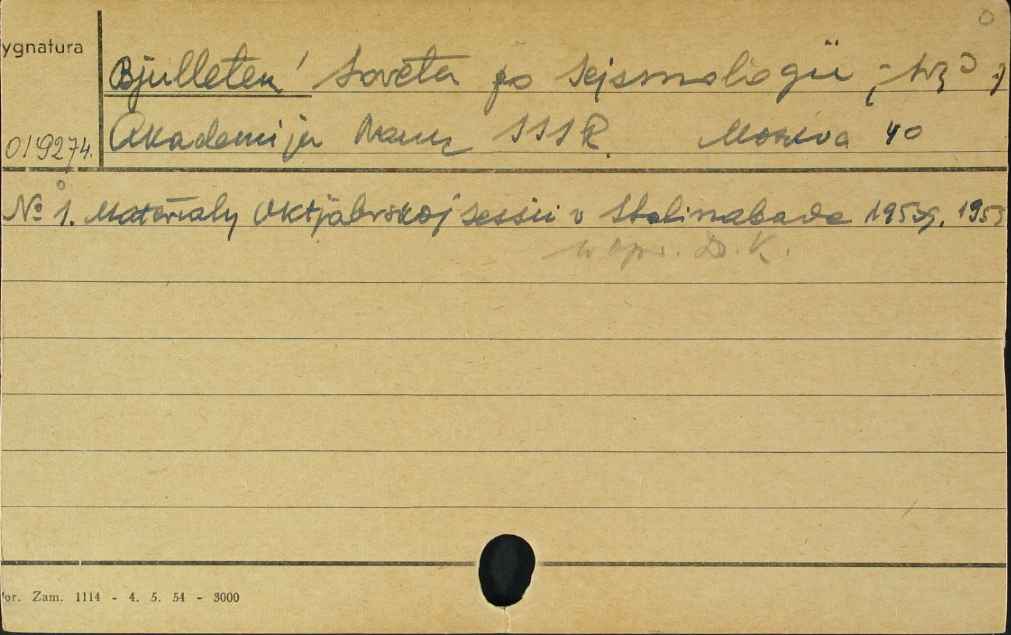 ygnatura
Bjulleten' Soveta po Sejsmologii
019274. Akademija Nauk SSSR. Moskva 40
№ 1. Materialy Oktjabrskoj sessii v Stalinabade 1953g. 1953
D. K.
or. Zam. 1114 - 4. 5. 54 - 3000